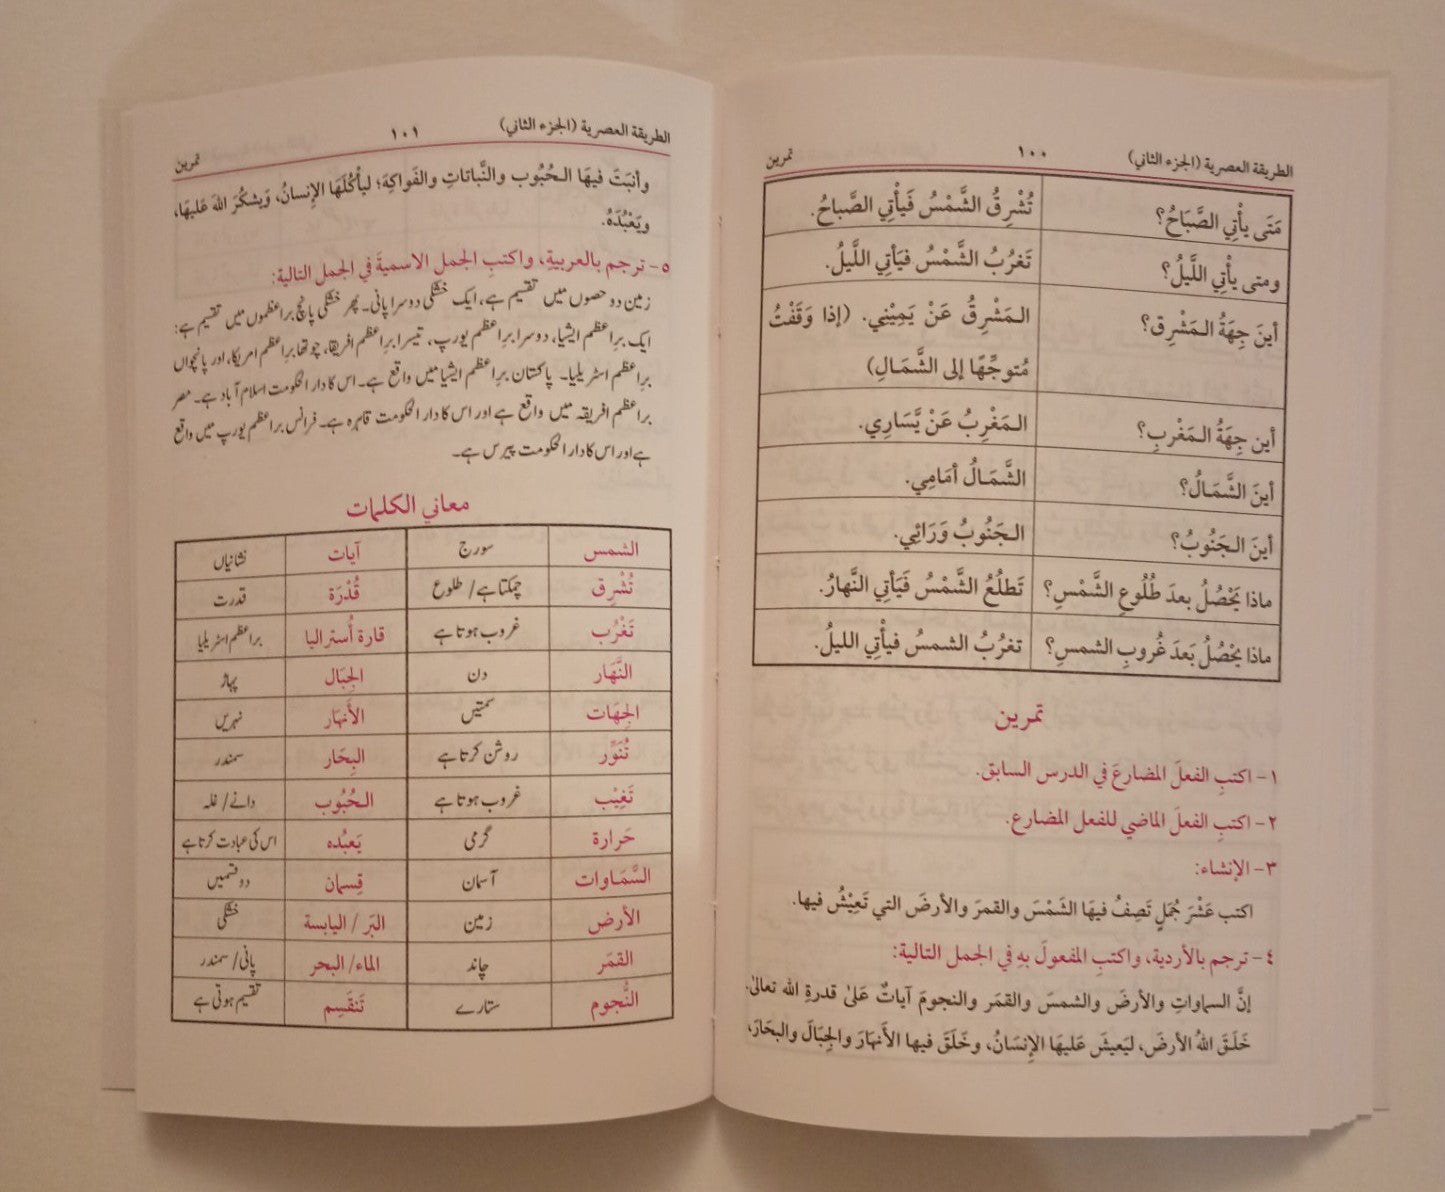 الطريقة العصرية (الجزء الثاني) ١٠٠ تمرين
مَتَى يأْتِي الصَّبَاحُ؟ تُشْرِقُ الشَّمْسُ فَيأْتِي الصَّباحُ.
ومتى يأْتِي اللَّيلُ؟ تَغرُبُ الشَّمْسُ فيَأتِي اللَّيلُ.
أينَ جِهَةُ المَشْرِق؟ المَشْرِقُ عَنْ يَمِيْنِي. (إذا وَقَفْتُ
مُتوجِّهًا إلى الشَّمَالِ)
أين جِهَةُ المَغْربِ؟ المَغْرِبُ عَنْ يَّسَارِي.
أينَ الشَّمَالُ؟ الشَّمَالُ أمَامِي.
أينَ الجَنُوبُ؟ الجَنُوبُ وَرَائِي.
ماذا يَحْصُلُ بعدَ طُلُوعِ الشَّمْسِ؟ تَطلُعُ الشَّمْسُ فَيَأتِي النَّهارُ.
ماذا يَحْصُلُ بَعدَ غُروبِ الشمسِ؟ تغرُبُ الشمسُ فيأتِي الليلُ.
تمرين
١- اكتبِ الفعلَ المضارعَ في الدرس السابق.
٢- اكتبِ الفعلَ الماضي للفعل المضارع.
٣- الإنشاء:
اكتب عَشْرَ جُمَلٍ تَصِفُ فيهَا الشَمْسَ والقمرَ والأرضَ التي تَعِيْشُ فيها.
٤- ترجم بالأردية، واكتبِ المفعولَ بهِ في الجمل التالية:
إنَّ السماواتِ والأرضَ والشمسَ والقمَر والنجومَ آياتٌ عَلىٰ قدرةِ الله تعالىٰ.
خَلَقَ اللهُ الأرضَ، ليَعيشَ عَليهَا الإنسَانُ، وخَلَقَ فيها الأنهَارَ والجِبَالَ والبحَارَ،
الطريقة العصرية (الجزء الثاني) ١٠١ تمرين
وأنبَتَ فيهَا الحُبُوب والنَّباتاتِ والفَواكِهَ؛ ليأكُلَهَا الإنسانُ، وَيشكُرَ اللهَ عَليهَا،
ويَعْبُدَهُ.
٥- ترجم بالعربيةِ، واكتبِ الجمل الاسميةَ في الجمل التالية:
زمین دو حصوں میں تقسیم ہے، ایک خشکی دوسرا پانی۔ پھر خشکی پانچ براعظموں میں تقسیم ہے:
ایک براعظم ایشیا، دوسرا براعظم یورپ، تیسرا براعظم افریقا، چوتھا براعظم امریکا، اور پانچواں
براعظم اسٹریلیا۔ پاکستان براعظم ایشیا میں واقع ہے۔ اس کا دار الحکومت اسلام آباد ہے۔ مصر
براعظم افریقہ میں واقع ہے اور اس کا دار الحکومت قاہرہ ہے۔ فرانس براعظم یورپ میں واقع
ہے اور اس کا دار الحکومت پیرس ہے۔
معاني الكلمات
الشمس سورج آيات نشانیاں
تُشْرِق چمکتا ہے/ طلوع قُدْرَة قدرت
تَغْرُب غروب ہوتا ہے قارة أُستراليا براعظم اسٹریلیا
النَّهَار دن الجِبَال پہاڑ
الجِهَات سمتیں الأَنهَار نہریں
تُنَوِّر روشن کرتا ہے البِحَار سمندر
تَغِيْب غروب ہوتا ہے الحُبُوب دانے/ غلہ
حَرارة گرمی يَعبُده اس کی عبادت کرتا ہے
السَّمَاوات آسمان قِسمان دو قسمیں
الأرض زمین البَر / اليابسة خشکی
القمَر چاند الماء/ البحر پانی/ سمندر
النُّجوم ستارے تَنقَسِم تقسیم ہوتی ہے